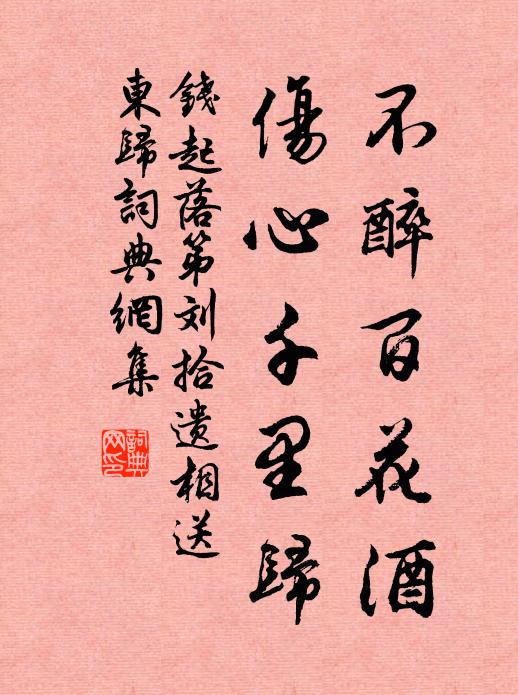 不醉百花酒
傷心千里歸
錢起落第刘拾遗相送
東歸詞典網集
詞典
网印